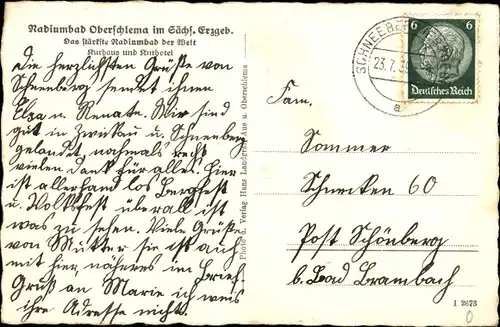 Radiumbad Oberschlema im Sächs. Erzgeb.
Das stärkste Radiumbad der Welt
Kurhaus und Kurhotel
Die herzlichsten Grüße von
Schneeberg sendet ihnen
Elza u. Renate. Wir sind
gut in Zwickau u. Schneeberg
gelandet, nochmals recht
vielen Dank für alles. Hier
ist allerhand los Bergfest
u. Volksfest überall ist
was zu sehen. Viele Grüße
von Mutter sie ist auch
mit hier, näheres im Brief.
Gruß an Marie ich weis
ihre Adresse nicht.
Photo u. Verlag Hans Landgraf, Aue u. Oberschlema
SCHNEEB
23.7.3
a
6 6
Deutsches Reich
Fam.
Sommer
Schnecken 60
Post Schönberg
b. Bad Brambach
I 2673
0